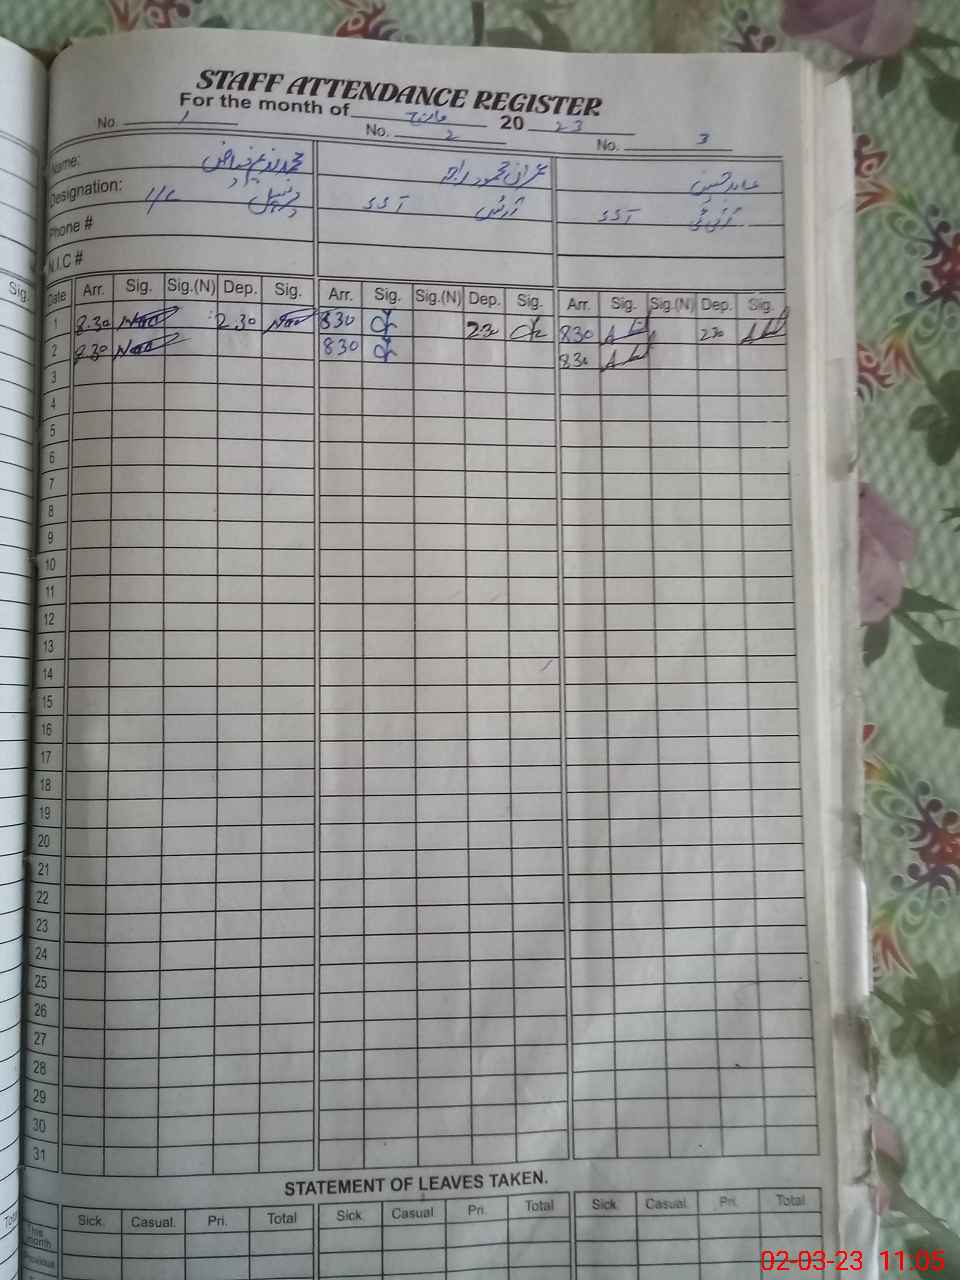 STAFF ATTENDANCE REGISTER
For the month of مارچ 20 23
No. 1 No. 2 No. 3
Name: محمد عمران محمود عابد حسین
Designation: I/C پرنسپل SST آرٹس SST آئی ٹی
Phone #
N.I.C #
Date Arr. Sig. Sig.(N) Dep. Sig. Arr. Sig. Sig.(N) Dep. Sig. Arr. Sig. Sig.(N) Dep. Sig.
1 8.30 2.30 830 230 830 230
2 8.30 830 830
3
4
5
6
7
8
9
10
11
12
13
14
15
16
17
18
19
20
21
22
23
24
25
26
27
28
29
30
31
STATEMENT OF LEAVES TAKEN.
Sick. Casual. Pri. Total Sick Casual Pri. Total Sick Casual Pri. Total
This month
Sig.
02-03-23 11:05